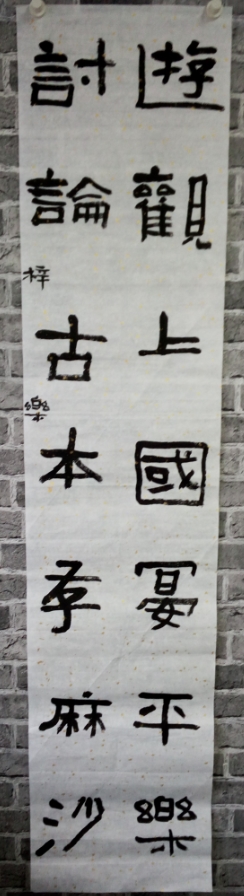 遊觀上國宴平樂
討論古本麻沙
梓樂